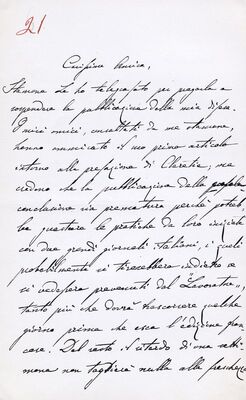 21
Carissima Amica,
Stamane Le ho telegrafato per pregarla a
sospendere la pubblicazione della mia difesa.
I miei amici, consultati da me stamane,
hanno ammirato il suo primo articolo
intorno alla prefazione di Claretie, ma
credono che la pubblicazione della
conclusione sia prematura perchè potreb
be guastare le pratiche da loro iniziate
con due grandi giornali italiani, i quali
probabilmente si tirerebbero indietro se
si vedessero prevenuti dal "Lavoratore",
tanto più che dovrà trascorrere qualche
giorno prima che esca l'edizione fran
cese. Del resto il ritardo di una setti
mana non toglierà nulla alla freschezza